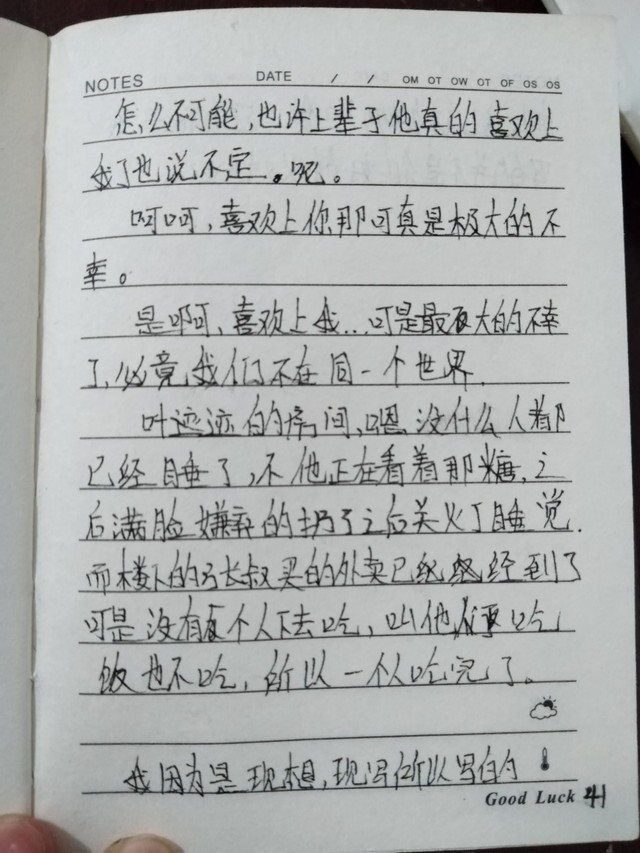 NOTES DATE / / OM OT OW OT OF OS OS
怎么不可能,也许上辈子他真的喜欢上
我了也说不定。呢。
呵呵,喜欢上你那可真是极大的不
幸。
是啊,喜欢上我...可是最大的不幸
了,必竟我们不在同一个世界.
叶迹迹的房间,嗯没什么人都
已经睡了,不他正在看着那糖,之
后满脸嫌弃的扔了之后关火丁睡觉.
而楼下的弓长叔买的外卖已经到了
可是没有一个人下去吃,叫他们吃
饭也不吃,所以一个人吃完了。
我因为是现想,现写所以写的
Good Luck 41